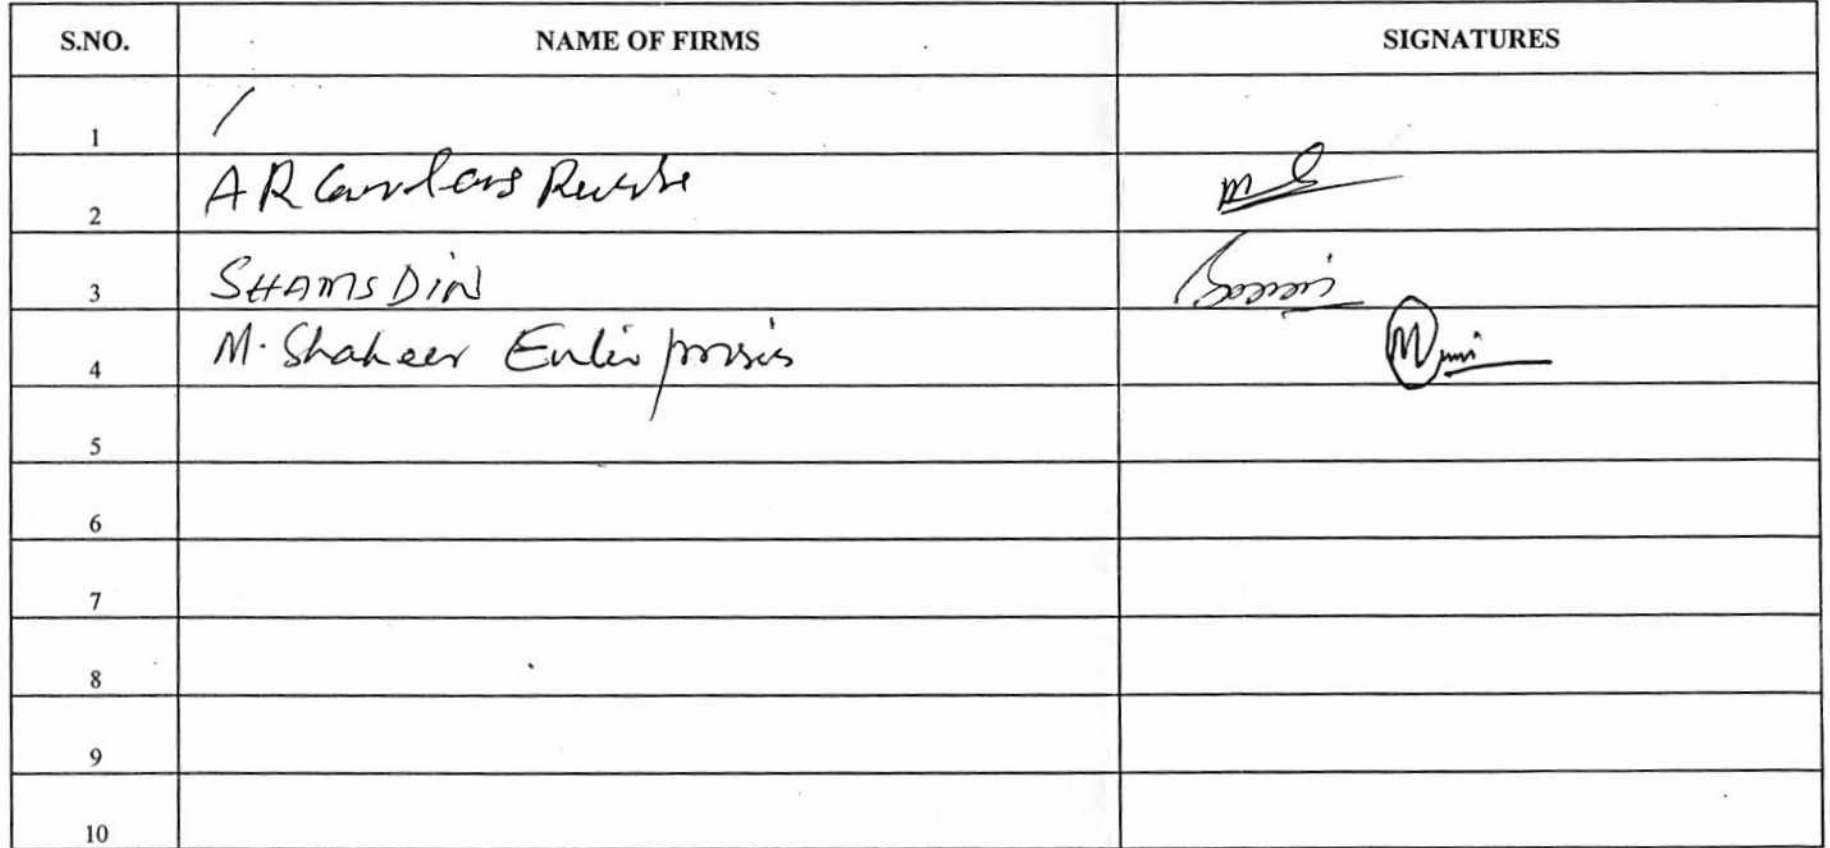 S.NO. NAME OF FIRMS SIGNATURES
1 /
2 A R
3 SHAMSDIN
4 M. Shaheer Enterprises
5
6
7
8
9
10